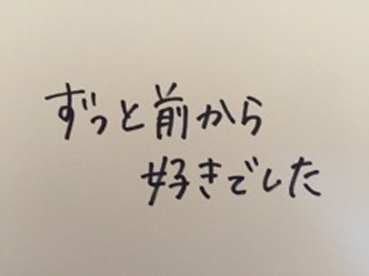 ずっと前から
好きでした